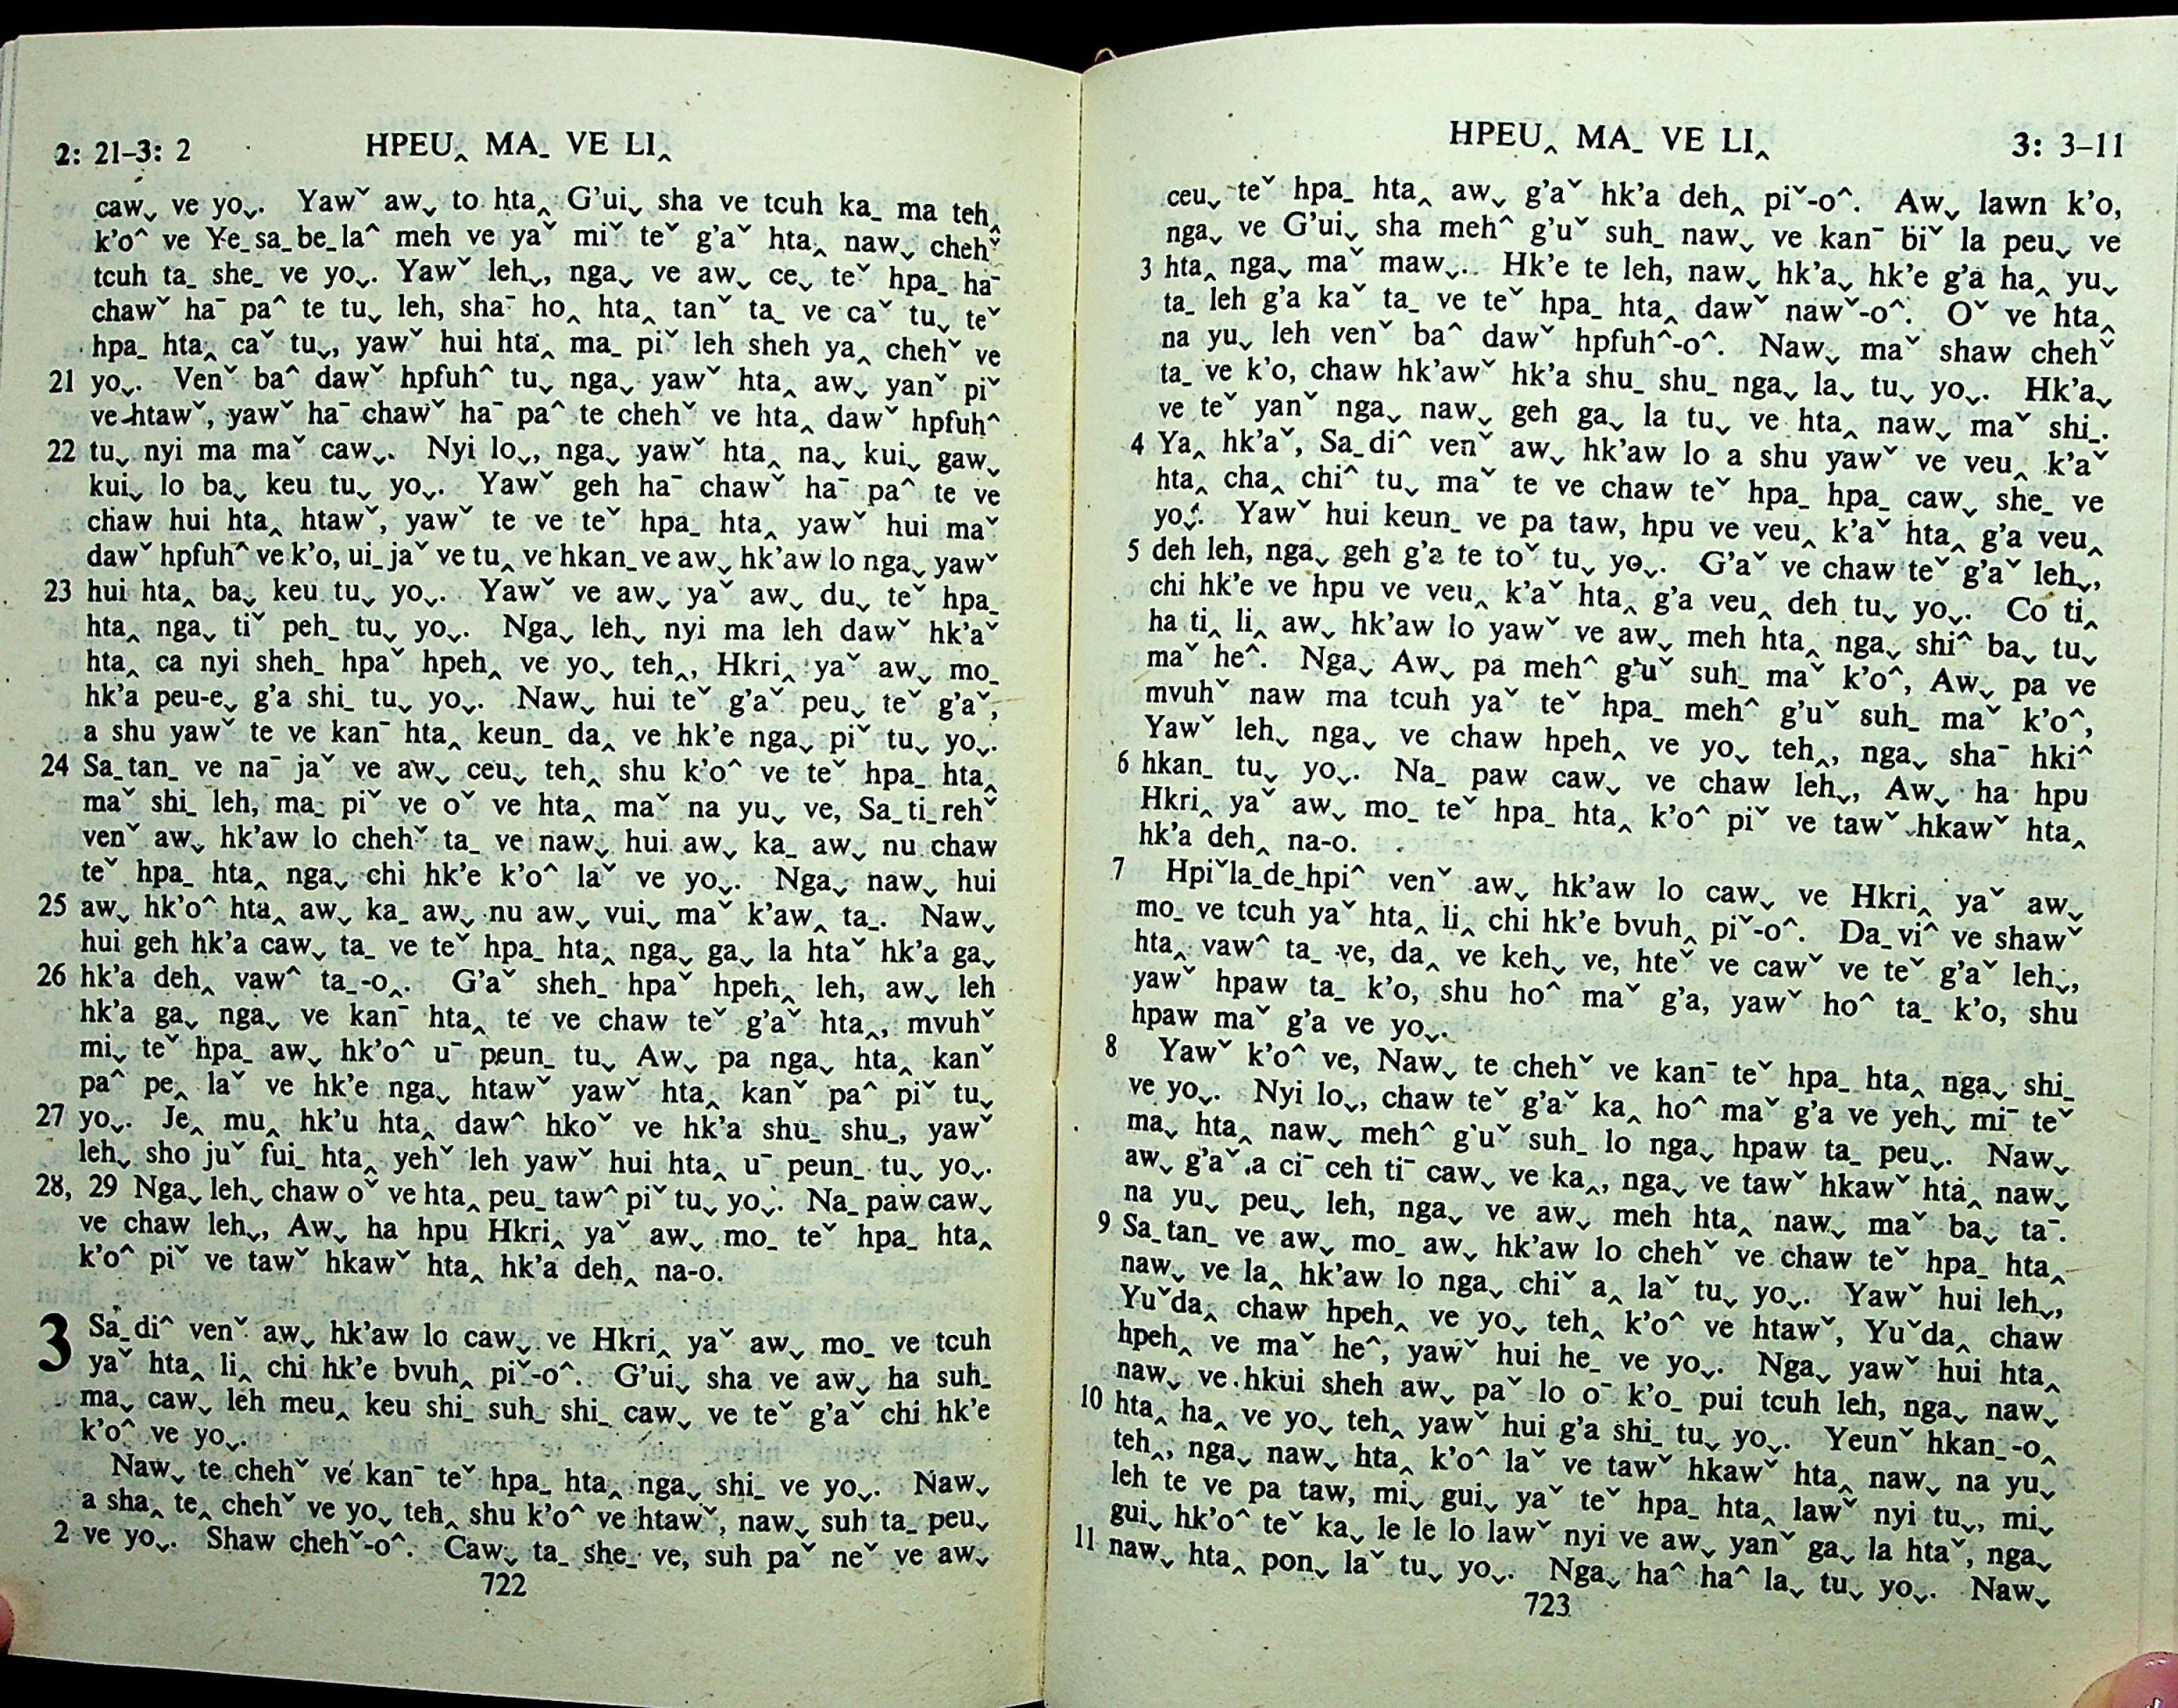 2: 21–3: 2 HPEU‸ MA_ VE LI‸
caw⌄ ve yo⌄. Yawˇ aw⌄ to hta‸ G'ui⌄ sha ve tcuh ka_ ma teh‸
k'o^ ve Ye_sa_be_la^ meh ve yaˇ miˇ teˇ g'aˇ hta‸ naw⌄ chehˇ
tcuh ta_ she_ ve yo⌄. Yawˇ leh⌄, nga⌄ ve aw⌄ ce⌄ teˇ hpa_ haˉ
chawˇ haˉ pa^ te tu⌄ leh, shaˉ ho‸ hta‸ tanˇ ta_ ve caˇ tu⌄ teˇ
hpa_ hta‸ caˇ tu⌄, yawˇ hui hta‸ ma_ piˇ leh sheh ya‸ chehˇ ve
21 yo⌄. Venˇ ba^ dawˇ hpfuh^ tu⌄ nga⌄ yawˇ hta‸ aw⌄ yanˇ piˇ
ve htawˇ, yawˇ haˉ chawˇ haˉ pa^ te chehˇ ve hta‸ dawˇ hpfuh^
22 tu⌄ nyi ma maˇ caw⌄. Nyi lo⌄, nga⌄ yawˇ hta‸ na⌄ kui⌄ gaw⌄
kui⌄ lo ba⌄ keu tu⌄ yo⌄. Yawˇ geh haˉ chawˇ haˉ pa^ te ve
chaw hui hta‸ htawˇ, yawˇ te ve teˇ hpa_ hta‸ yawˇ hui maˇ
dawˇ hpfuh^ ve k'o, ui_jaˇ ve tu‸ ve hkan_ ve aw⌄ hk'aw lo nga⌄ yawˇ
23 hui hta‸ ba⌄ keu tu⌄ yo⌄. Yawˇ ve aw⌄ yaˇ aw⌄ du⌄ teˇ hpa_
hta‸ nga⌄ tiˇ peh_ tu⌄ yo⌄. Nga⌄ leh⌄ nyi ma leh dawˇ hk'aˇ
hta‸ ca nyi sheh_ hpaˇ hpeh‸ ve yo⌄ teh‸, Hkri‸ yaˇ aw⌄ mo_
hk'a peu-e⌄ g'a shi_ tu⌄ yo⌄. Naw⌄ hui teˇ g'aˇ peu⌄ teˇ g'aˇ,
a shu yawˇ te ve kanˉ hta‸ keun_ da‸ ve hk'e nga⌄ piˇ tu⌄ yo⌄.
24 Sa_tan_ ve naˉ jaˇ ve aw⌄ ceu⌄ teh‸ shu k'o^ ve teˇ hpa_ hta‸
maˇ shi_ leh, ma_ piˇ ve oˇ ve hta‸ maˇ na yu⌄ ve, Sa_ti_rehˇ
venˇ aw⌄ hk'aw lo chehˇ ta_ ve naw⌄ hui aw⌄ ka_ aw⌄ nu chaw
teˇ hpa_ hta‸ nga⌄ chi hk'e k'o^ laˇ ve yo⌄. Nga⌄ naw⌄ hui
25 aw⌄ hk'o^ hta‸ aw⌄ ka_ aw⌄ nu aw⌄ vui⌄ maˇ k'aw‸ ta_. Naw⌄
hui geh hk'a caw⌄ ta_ ve teˇ hpa_ hta‸ nga⌄ ga⌄ la htaˇ hk'a ga⌄
26 hk'a deh‸ vaw^ ta_-o‸. G'aˇ sheh_ hpaˇ hpeh‸ leh, aw⌄ leh
hk'a ga⌄ nga⌄ ve kanˉ hta‸ te ve chaw teˇ g'aˇ hta‸, mvuhˇ
mi⌄ teˇ hpa_ aw⌄ hk'o^ uˉ peun_ tu⌄ Aw⌄ pa nga⌄ hta‸ kanˇ
pa^ pe‸ laˇ ve hk'e nga⌄ htawˇ yawˇ hta‸ kanˇ pa^ piˇ tu⌄
27 yo⌄. Je‸ mu‸ hk'u hta‸ daw^ hkoˇ ve hk'a shu_ shu_, yawˇ
leh⌄ sho juˇ fui_ hta‸ yehˇ leh yawˇ hui hta‸ uˉ peun_ tu⌄ yo⌄.
28, 29 Nga⌄ leh⌄ chaw oˇ ve hta‸ peu_ taw^ piˇ tu⌄ yo⌄. Na_ paw caw⌄
ve chaw leh⌄, Aw⌄ ha hpu Hkri‸ yaˇ aw⌄ mo_ teˇ hpa_ hta‸
k'o^ piˇ ve tawˇ hkawˇ hta‸ hk'a deh‸ na-o.
3 Sa_di^ venˇ aw⌄ hk'aw lo caw⌄ ve Hkri‸ yaˇ aw⌄ mo_ ve tcuh
yaˇ hta‸ li‸ chi hk'e bvuh‸ piˇ-o^. G'ui⌄ sha ve aw⌄ ha suh_
ma⌄ caw⌄ leh meu‸ keu shi_ suh_ shi_ caw⌄ ve teˇ g'aˇ chi hk'e
k'o^ ve yo⌄.
Naw⌄ te chehˇ ve kanˉ teˇ hpa_ hta‸ nga⌄ shi_ ve yo⌄. Naw⌄
a sha‸ te‸ chehˇ ve yo⌄ teh‸ shu k'o^ ve htawˇ, naw⌄ suh ta_ peu⌄
2 ve yo⌄. Shaw chehˇ-o^. Caw⌄ ta_ she_ ve, suh paˇ neˇ ve aw⌄
722
HPEU‸ MA_ VE LI‸ 3: 3–11
ceu⌄ teˇ hpa_ hta‸ aw⌄ g'aˇ hk'a deh‸ piˇ-o^. Aw⌄ lawn k'o,
nga⌄ ve G'ui⌄ sha meh^ g'uˇ suh_ naw⌄ ve kanˉ biˇ la peu⌄ ve
3 hta‸ nga⌄ maˇ maw⌄. Hk'e te leh, naw⌄ hk'a⌄ hk'e g'a ha‸ yu⌄
ta_ leh g'a kaˇ ta_ ve teˇ hpa_ hta‸ dawˇ nawˇ-o^. Oˇ ve hta‸
na yu⌄ leh venˇ ba^ dawˇ hpfuh^-o^. Naw⌄ maˇ shaw chehˇ
ta_ ve k'o, chaw hk'awˇ hk'a shu_ shu_ nga⌄ la⌄ tu⌄ yo⌄. Hk'a⌄
ve teˇ yanˇ nga⌄ naw⌄ geh ga⌄ la tu⌄ ve hta‸ naw⌄ maˇ shi_.
4 Ya‸ hk'aˇ, Sa_di^ venˇ aw⌄ hk'aw lo a shu yawˇ ve veu‸ k'aˇ
hta‸ cha‸ chi^ tu⌄ maˇ te ve chaw teˇ hpa_ hpa_ caw⌄ she_ ve
yo⌄. Yawˇ hui keun_ ve pa taw, hpu ve veu‸ k'aˇ hta‸ g'a veu‸
5 deh leh, nga⌄ geh g'a te toˇ tu⌄ yo⌄. G'aˇ ve chaw teˇ g'aˇ leh⌄,
chi hk'e ve hpu ve veu‸ k'aˇ hta‸ g'a veu‸ deh tu⌄ yo⌄. Co ti‸
ha ti‸ li‸ aw⌄ hk'aw lo yawˇ ve aw⌄ meh hta‸ nga⌄ shi^ ba⌄ tu⌄
maˇ he^. Nga⌄ Aw⌄ pa meh^ g'uˇ suh_ maˇ k'o^, Aw⌄ pa ve
mvuhˇ naw ma tcuh yaˇ teˇ hpa_ meh^ g'uˇ suh_ maˇ k'o^,
Yawˇ leh⌄ nga⌄ ve chaw hpeh‸ ve yo⌄ teh‸, nga⌄ shaˉ hki^
6 hkan_ tu⌄ yo⌄. Na_ paw caw⌄ ve chaw leh⌄, Aw⌄ ha hpu
Hkri‸ yaˇ aw⌄ mo_ teˇ hpa_ hta‸ k'o^ piˇ ve tawˇ hkawˇ hta‸
hk'a deh‸ na-o.
7 Hpiˇla_de_hpi^ venˇ aw⌄ hk'aw lo caw⌄ ve Hkri‸ yaˇ aw⌄
mo_ ve tcuh yaˇ hta‸ li‸ chi hk'e bvuh‸ piˇ-o^. Da_vi^ ve shawˇ
hta‸ vaw^ ta_ ve, da‸ ve keh⌄ ve, hteˇ ve cawˇ ve teˇ g'aˇ leh⌄,
yawˇ hpaw ta_ k'o, shu ho^ maˇ g'a, yawˇ ho^ ta_ k'o, shu
hpaw maˇ g'a ve yo⌄.
8 Yawˇ k'o^ ve, Naw⌄ te chehˇ ve kanˉ teˇ hpa_ hta‸ nga⌄ shi_
ve yo⌄. Nyi lo⌄, chaw teˇ g'aˇ ka‸ ho^ maˇ g'a ve yeh⌄ miˉ teˇ
ma⌄ hta‸ naw⌄ meh^ g'uˇ suh_ lo nga⌄ hpaw ta_ peu⌄. Naw⌄
aw⌄ g'aˇ a ciˉ ceh tiˉ caw⌄ ve ka‸, nga⌄ ve tawˇ hkawˇ hta‸ naw⌄
na yu⌄ peu⌄ leh, nga⌄ ve aw⌄ meh hta‸ naw⌄ maˇ ba⌄ taˉ.
9 Sa_tan_ ve aw⌄ mo_ aw⌄ hk'aw lo chehˇ ve chaw teˇ hpa_ hta‸
naw⌄ ve la‸ hk'aw lo nga⌄ chiˇ a‸ laˇ tu⌄ yo⌄. Yawˇ hui leh⌄,
Yuˇda‸ chaw hpeh‸ ve yo⌄ teh‸ k'o^ ve htawˇ, Yuˇda‸ chaw
hpeh‸ ve maˇ he^, yawˇ hui he_ ve yo⌄. Nga⌄ yawˇ hui hta‸
naw⌄ ve hkui sheh aw⌄ paˇ lo oˉ k'o_ pui tcuh leh, nga⌄ naw⌄
10 hta‸ ha‸ ve yo⌄ teh‸ yawˇ hui g'a shi_ tu⌄ yo⌄. Yeunˇ hkan_-o‸
teh‸, nga⌄ naw⌄ hta‸ k'o^ laˇ ve tawˇ hkawˇ hta‸ naw⌄ na yu⌄
leh te ve pa taw, mi⌄ gui⌄ yaˇ teˇ hpa_ hta‸ lawˇ nyi tu⌄, mi⌄
gui⌄ hk'o^ teˇ ka⌄ le le lo lawˇ nyi ve aw⌄ yanˇ ga⌄ la htaˇ, nga⌄
11 naw⌄ hta‸ pon⌄ laˇ tu⌄ yo⌄. Nga⌄ ha^ ha^ la⌄ tu⌄ yo⌄. Naw⌄
723